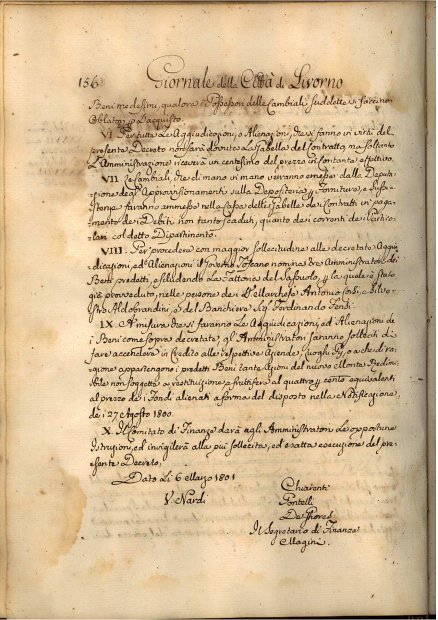 156 Giornale della Città di Livorno
Beni medesimi, qualora i Possessori delle Cambiali suddette si faccino
Oblatori p. l'acquisto.
VI. Per tutte le Aggiudicazioni, o Alienazioni, che si fanno in virtù del
presente Decreto non sarà dovuta La Gabella del Contratto, ma soltanto
L'Amministrazione riceverà un centesimo del prezzo in contante effettivo.
VII. Le Cambiali, che di mano in mano verranno emesse dalla Deputa-
zione degl'Approvisionamenti sulla Depositeria p. forniture, e Sussi-
stenze saranno ammesse nella Cassa delle Gabelle dei Contratti in paga-
mento dei Debiti non tanto scaduti, quanto dei correnti dei Partico-
lari col detto Dipartimento.
VIII. Per procedere con maggior sollecitudine alle decretate Aggiu-
dicazioni, ed Alienazioni il Governo Toscano nomina tre Amministratori dei
Beni predetti, escludendo La Fattoria del p. la quale è stato
già provveduto, nelle persone dei Marchese Antonio Corsi, e Silve-
stro Aldobrandini, e del Banchiere Sig. Ferdinando Fonsi.
IX. A misura che si faranno Le Aggiudicazioni, ed Alienazioni de
i Beni come sopra decretate, gl'Amministratori saranno solleciti di
fare accendere in Credito alle respettive Aziende, Luoghi Pij, o a chi di ra-
gione appartengono i predetti Beni tante Azioni del nuovo Monte Redimi-
bile non soggetto a restituzione, e fruttifero al quattro p. cento equivalenti
al prezzo dei fondi alienati a forma del disposto nella Notificazione
de i 27 Agosto 1800.
X. Il Comitato di Finanze darà agli Amministratori Le opportune
Istruzioni, ed invigilerà alla più sollecita, ed esatta esecuzione del pre-
sente Decreto.
Dato Li 6 Marzo 1801
V. Nardi
Chiarenti
Pontelli
De Ghores
Il Segretario di Finanze
Magini